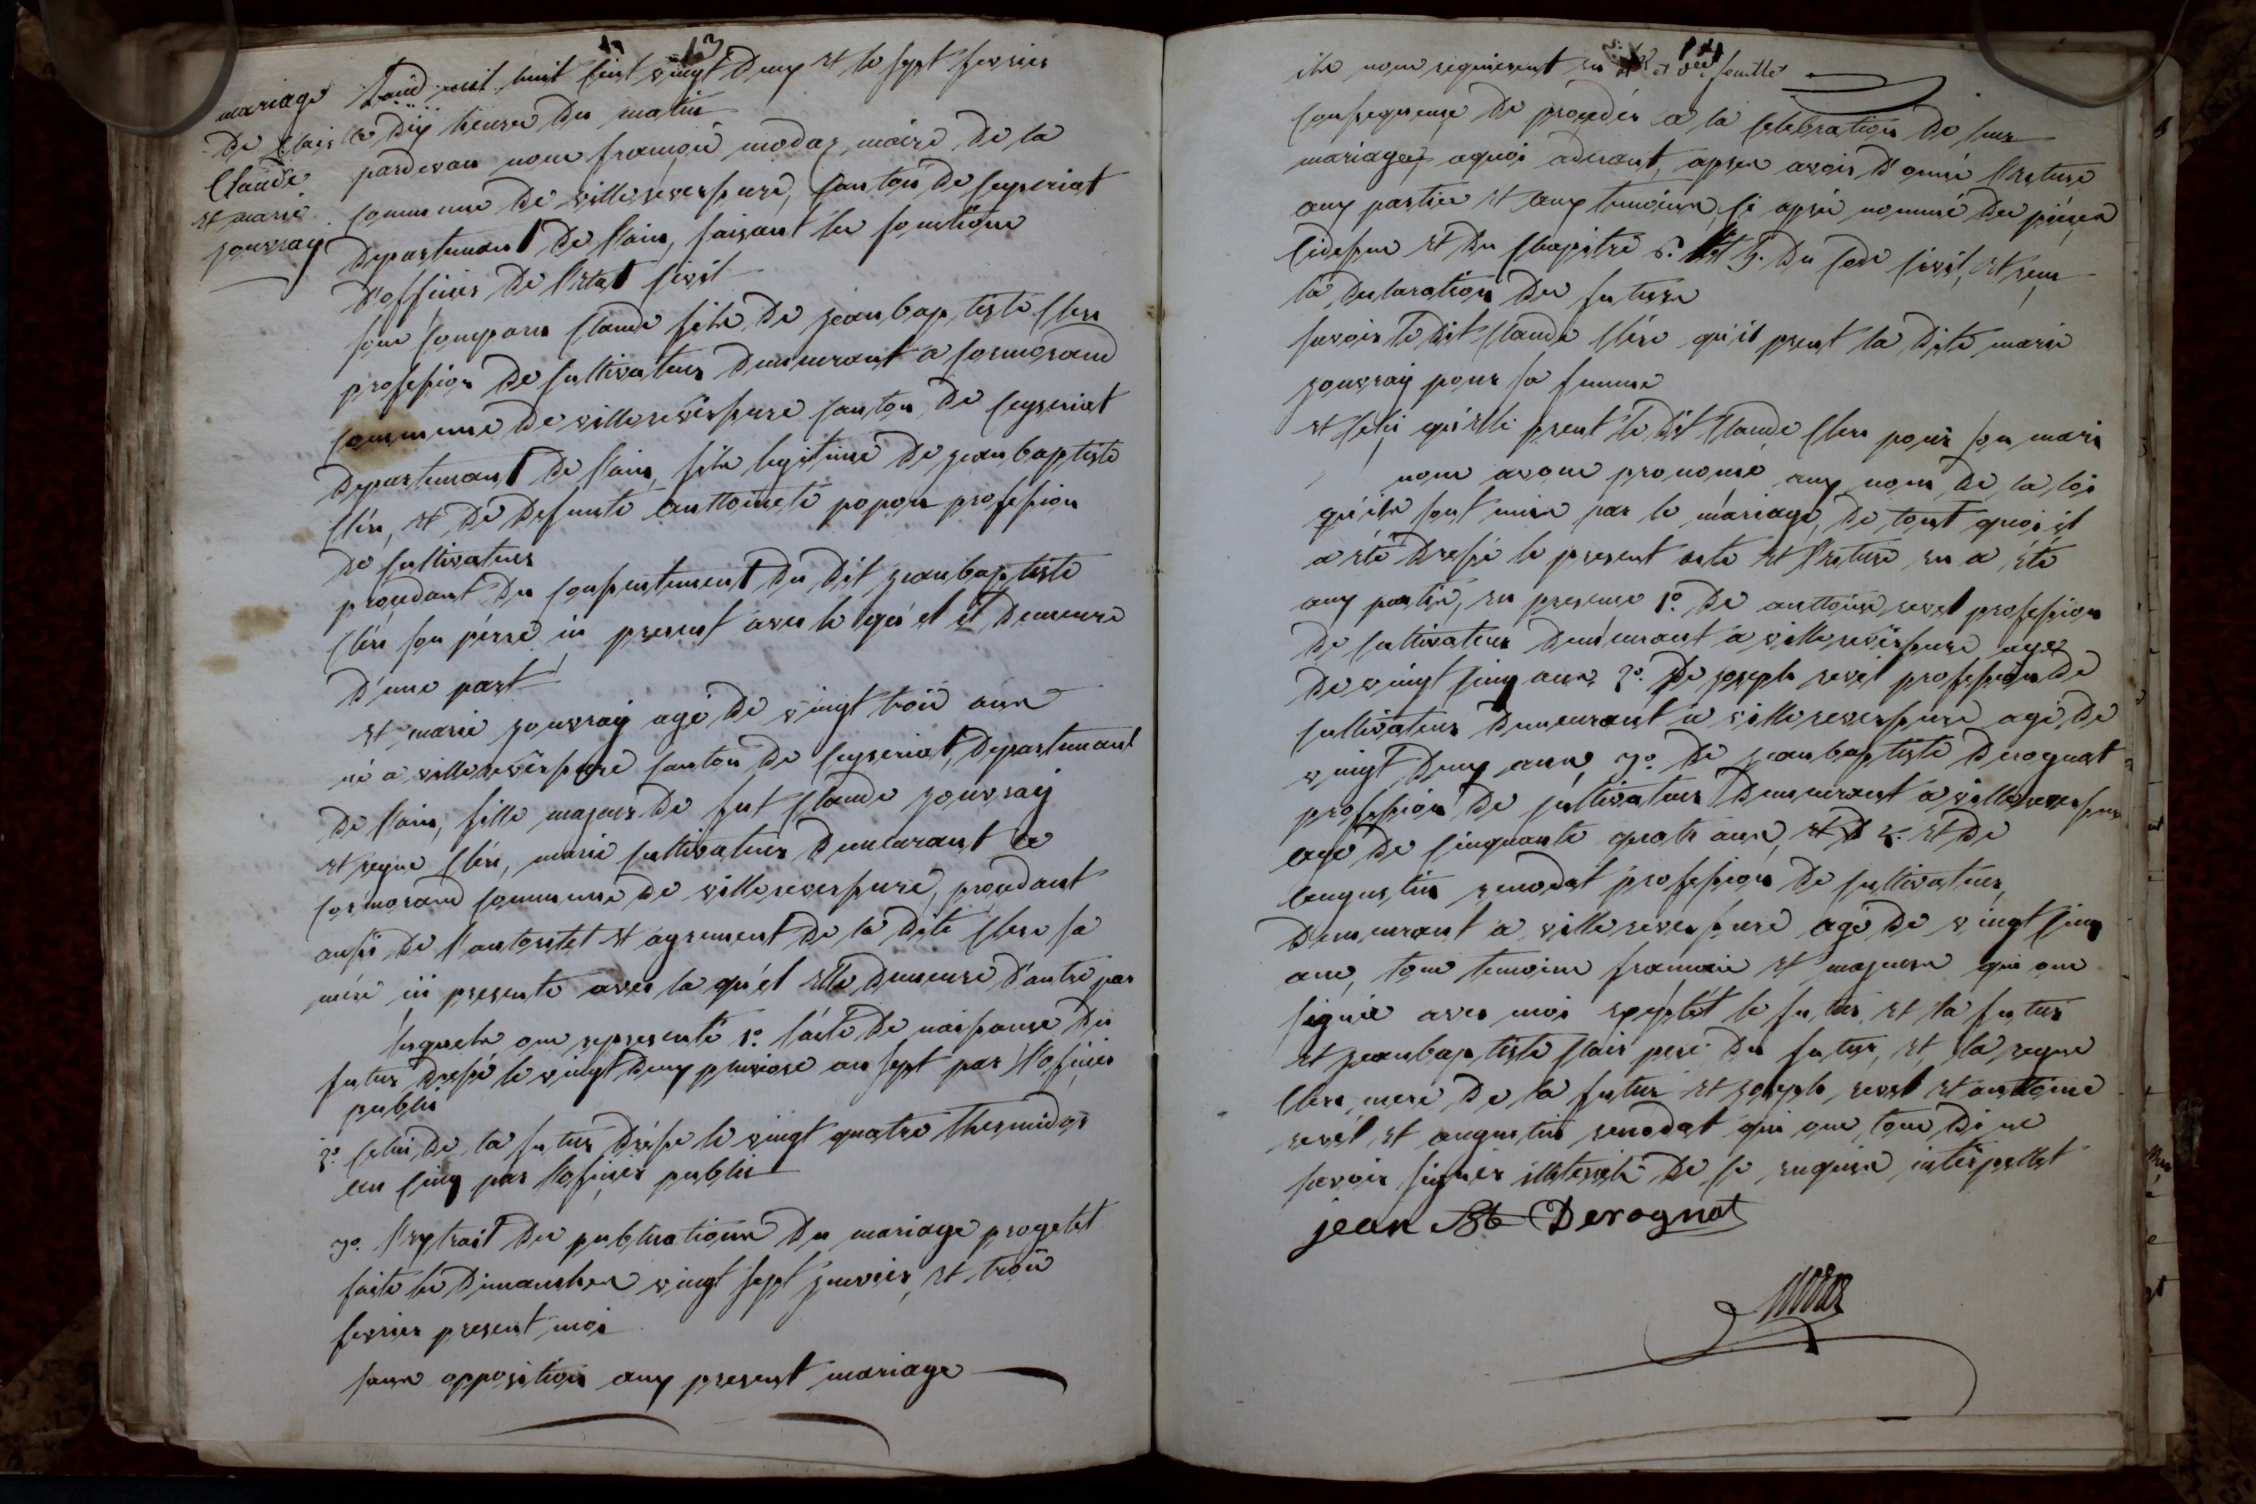 13
mariage
De Clair
Claude
et marie
jouvray
L'an mil huit cent vingt deux et le sept fevrier
a dix heures du matin
pardevan nous françois modaz maire de la
commune de villereversure, canton de ceyseriat
departemant de l'ain, faisant les fonctions
d'officier de l'etat civil
son comparu Claude fils de jeanbaptiste Clere
profession de cultivateur demeurant a cosmorand
commune de villereversure canton de ceyseriat
departemant de l'ain, fils legitime de jeanbaptiste
Clere, et de defunte anttoinete popon profession
de cultivateur
procedant du consentement du dit jeanbaptiste
Clere son pérre ici present avec le quel il demeure
d'une part
et marie jouvray agé de vingt trois ans
né a villereversure canton de ceyseriat, departemant
de l'ain, fille majeur de fut Claude jouvray
et reyne Clere, marié cultivateur demeurant a
cosmorand commune de villereversure, procedant
aussi de l'autoritet et agrement de la dite Clere sa
mére ici presente avec la quél elle demeure d'autre par
lesquels ons representé 1º l'acte de naissance du
futur dressé le vingt deux pluviose an sept par l'oficier
public
2º celui de la futur dréssé le vingt quatre thermidor
an cinq par l'oficier public
3º l'extrait des publications du mariage progetet
faite les dimanches vingt sept janvier, et trois
fevrier present moi
sans opposition aux present mariage
14
ils nous requierent en feuillet
consequence de proceder a la celebration de leur
mariage, aquoi aderant, apres avoir donné lecture
aux parties et aux temoins ci après nommé des piéces
cidessus et du chapitre 6. du code civil, et reçu
la declaration des futurs
savoir le dit Claude Clére qu'il prent la dite marie
jouvray pour sa femme
et celci qu'elle prent le dit Claude Clere pour son mari
nous avons prononcé aux nom de la loi
qu'ils sont unis par le máriage, de tout quoi il
a été dressé le present acte et lecture en a été
aux partie, en presence 1º de anttoine revel profession
de cultivateur demeurant a villereversure agé
de vingt cinq ans, 2º de joseph revel profession de
cultivateur demeurant a villereversure agé de
vingt deux ans 3º de jeanbaptiste derognat
profession de cultivateur demeurant a villereversure
agé de cinquante quatre ans, et d 4º et de
augustin renodat profession de cultivateur
demeurant a villereversure agé de vingt cinq
ans, tous temoins françois et majeurs qui ons
signié avec moi exeptét le futur et la futur
et jeanbaptiste Clair pere du futur, et la reyne
Clere, mere de la futur et joseph revel et anttoine
revél et augustin renodat qui ons tous di ne
savoir signier illeteraté de ce enquis interpellet
jean Bte Derognat
Modas